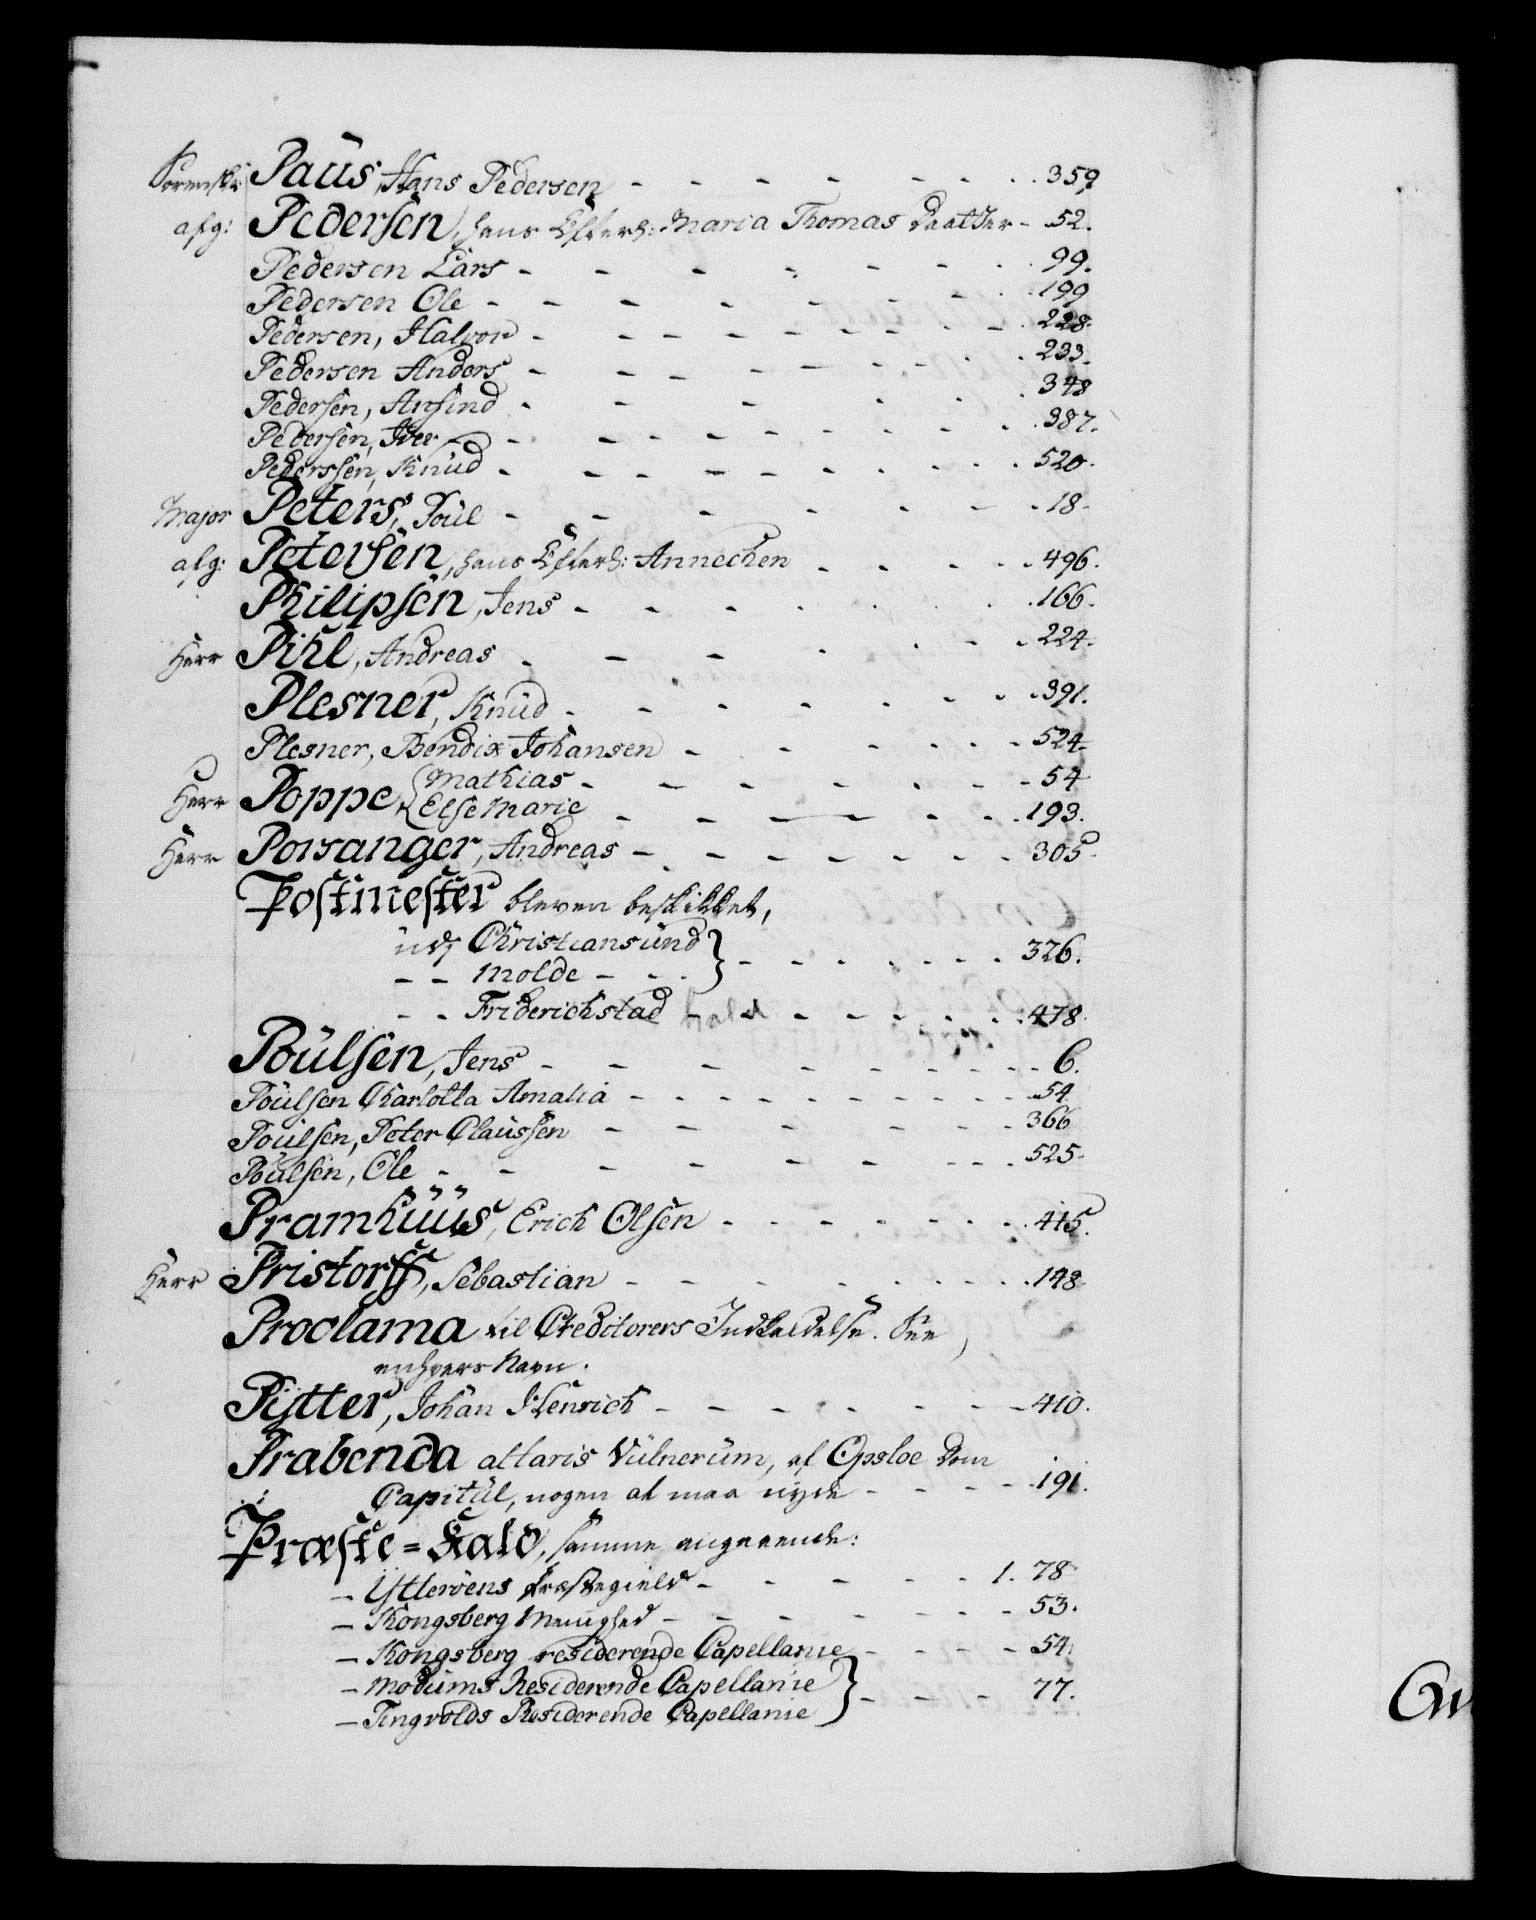 Sorenskr: Paüs, Hans Pedersen - - - - - - - 359
afg: Pedersen, hans Efterl: Maria Thomas Daatter - 52.
Pedersen Lars - - - - - - - 99.
Pedersen Ole - - - - - - - 199
Pedersen, Halvor - - - - - - - 228.
Pedersen Anders - - - - - - - 233.
Pedersen, Arsind - - - - - - 348
Pedersen, Iver - - - - - - - 387.
Pederssen, Knüd - - - - - - - 520.
Major Peters, Poül - - - - - - - 18.
afg: Petersen, hans Efterl: Annechen - - - - 496.
Philipsen, Jens - - - - - - - 166.
Herr Pihl, Andreas - - - - - - 224.
Plesner, Knüd - - - - - - - 391.
Plesner, Bendix Johansen - - - - - - 524.
Herr Poppe { Mathias - - - - - - - 54
Else Marie - - - - - - 193.
Herr Porsanger, Andreas - - - - - - - 305.
Postmester bleven beskikket,
üdj Christiansünd } - - - - - - - 326.
- - Molde - - -
- - Friderichstad hald - - - - - - 478.
Poülsen, Jens - - - - - - - - 6.
Poülsen Charlotta Amalia - - - - - - - - 54
Poülsen, Peter Claüssen - - - - - - 366
Poülsen, Ole - - - - - - - - 525.
Pramhüüs, Erich Olsen - - - - - - - 415.
Herr Pristorff, Sebastian - - - - - - - - 148.
Proclama til Creditorers Indkaldelse. See
enhvers Navn.
Pütter, Johan Henrich - - - - - - - 410.
Prabenda altaris Vülnerüm, af Opsloe Dom
Capitül, nogen at maa nyde - - - - 191.
Præste=Kald, samme angaaende:
- Ytterøens Præstegield - - - - - 1. 78
- Kongsberg Menighed - - - - - - 53.
- Kongsberg residerende Capellanie - - - - 54.
- Modüms Residerende Capellanie } - - - 77.
- Tingvolds Residerende Capellanie